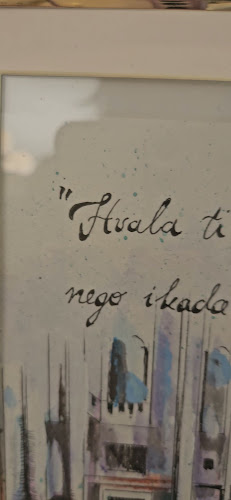 "Hvala ti
nego ikada